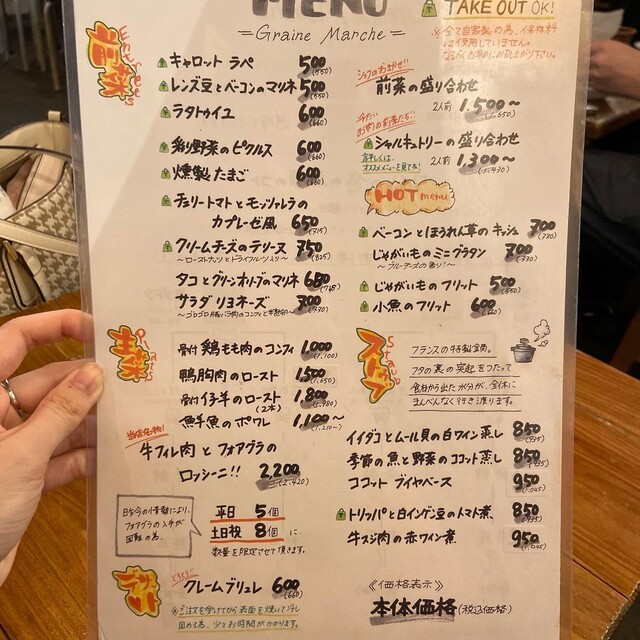 MENU
=Graine Marche=
TAKE OUT OK!
※全て自家製の為、保存料
は使用していません。
なるべくお早めにお召し上がり下さい。
前菜
Entrées
キャロット ラペ 500(550)
レンズ豆とベーコンのマリネ 500(550)
ラタトゥイユ 600(660)
彩り野菜のピクルス 600(660)
燻製たまご 600(660)
チェリートマトとモッツァレラの
カプレーゼ風 650(715)
クリームチーズのテリーヌ 750(825)
～ローストナッツとドライフルーツ入り～
タコとグリーンオリーブのマリネ 680(748)
サラダ リヨネーズ 700(770)
シェフのおまかせ
前菜の盛り合わせ
2人前 1,500～(1,650)
冷たい
お肉の前菜たち!
シャルキュトリーの盛り合わせ
詳しくは、
オススメメニューを見てね! 2人前 1,300～(1,430)
HOT menu
ベーコンとほうれん草のキッシュ 700(770)
じゃがいものミニグラタン 700(770)
～ブルーチーズの香り!～
じゃがいものフリット 500(550)
小魚のフリット 600(660)
主菜
Plats
骨付 鶏もも肉のコンフィ 1,000(1,100)
鴨胸肉のロースト 1,500(1,650)
骨付仔羊のロースト 1,800(1,980)
(2本)
鮮魚のポワレ 1,100～(1,210～)
当店名物!
牛フィレ肉とフォアグラの
ロッシーニ!! 2,200(2,420)
昨今の情勢により、
フォアグラの入手が
困難の為、
平日 5個
土日祝 8個に
数量を限定させて頂きます。
ストウブ
Staub
フランスの特製鍋。
フタの裏の突起をつたって
食材から出た水分が、全体に
まんべんなく行き渡ります。
イイダコとムール貝の白ワイン蒸し 850(935)
季節の魚と野菜のココット蒸し 850(935)
ココット ブイヤベース 950(1,045)
トリッパと白インゲン豆のトマト煮 850(935)
牛スジ肉の赤ワイン煮 950(1,045)
クレームブリュレ 600(660)
※ご注文を受けてから表面を焼いて冷し
固める為、少々お時間がかかります。
《価格表示》
本体価格(税込価格)